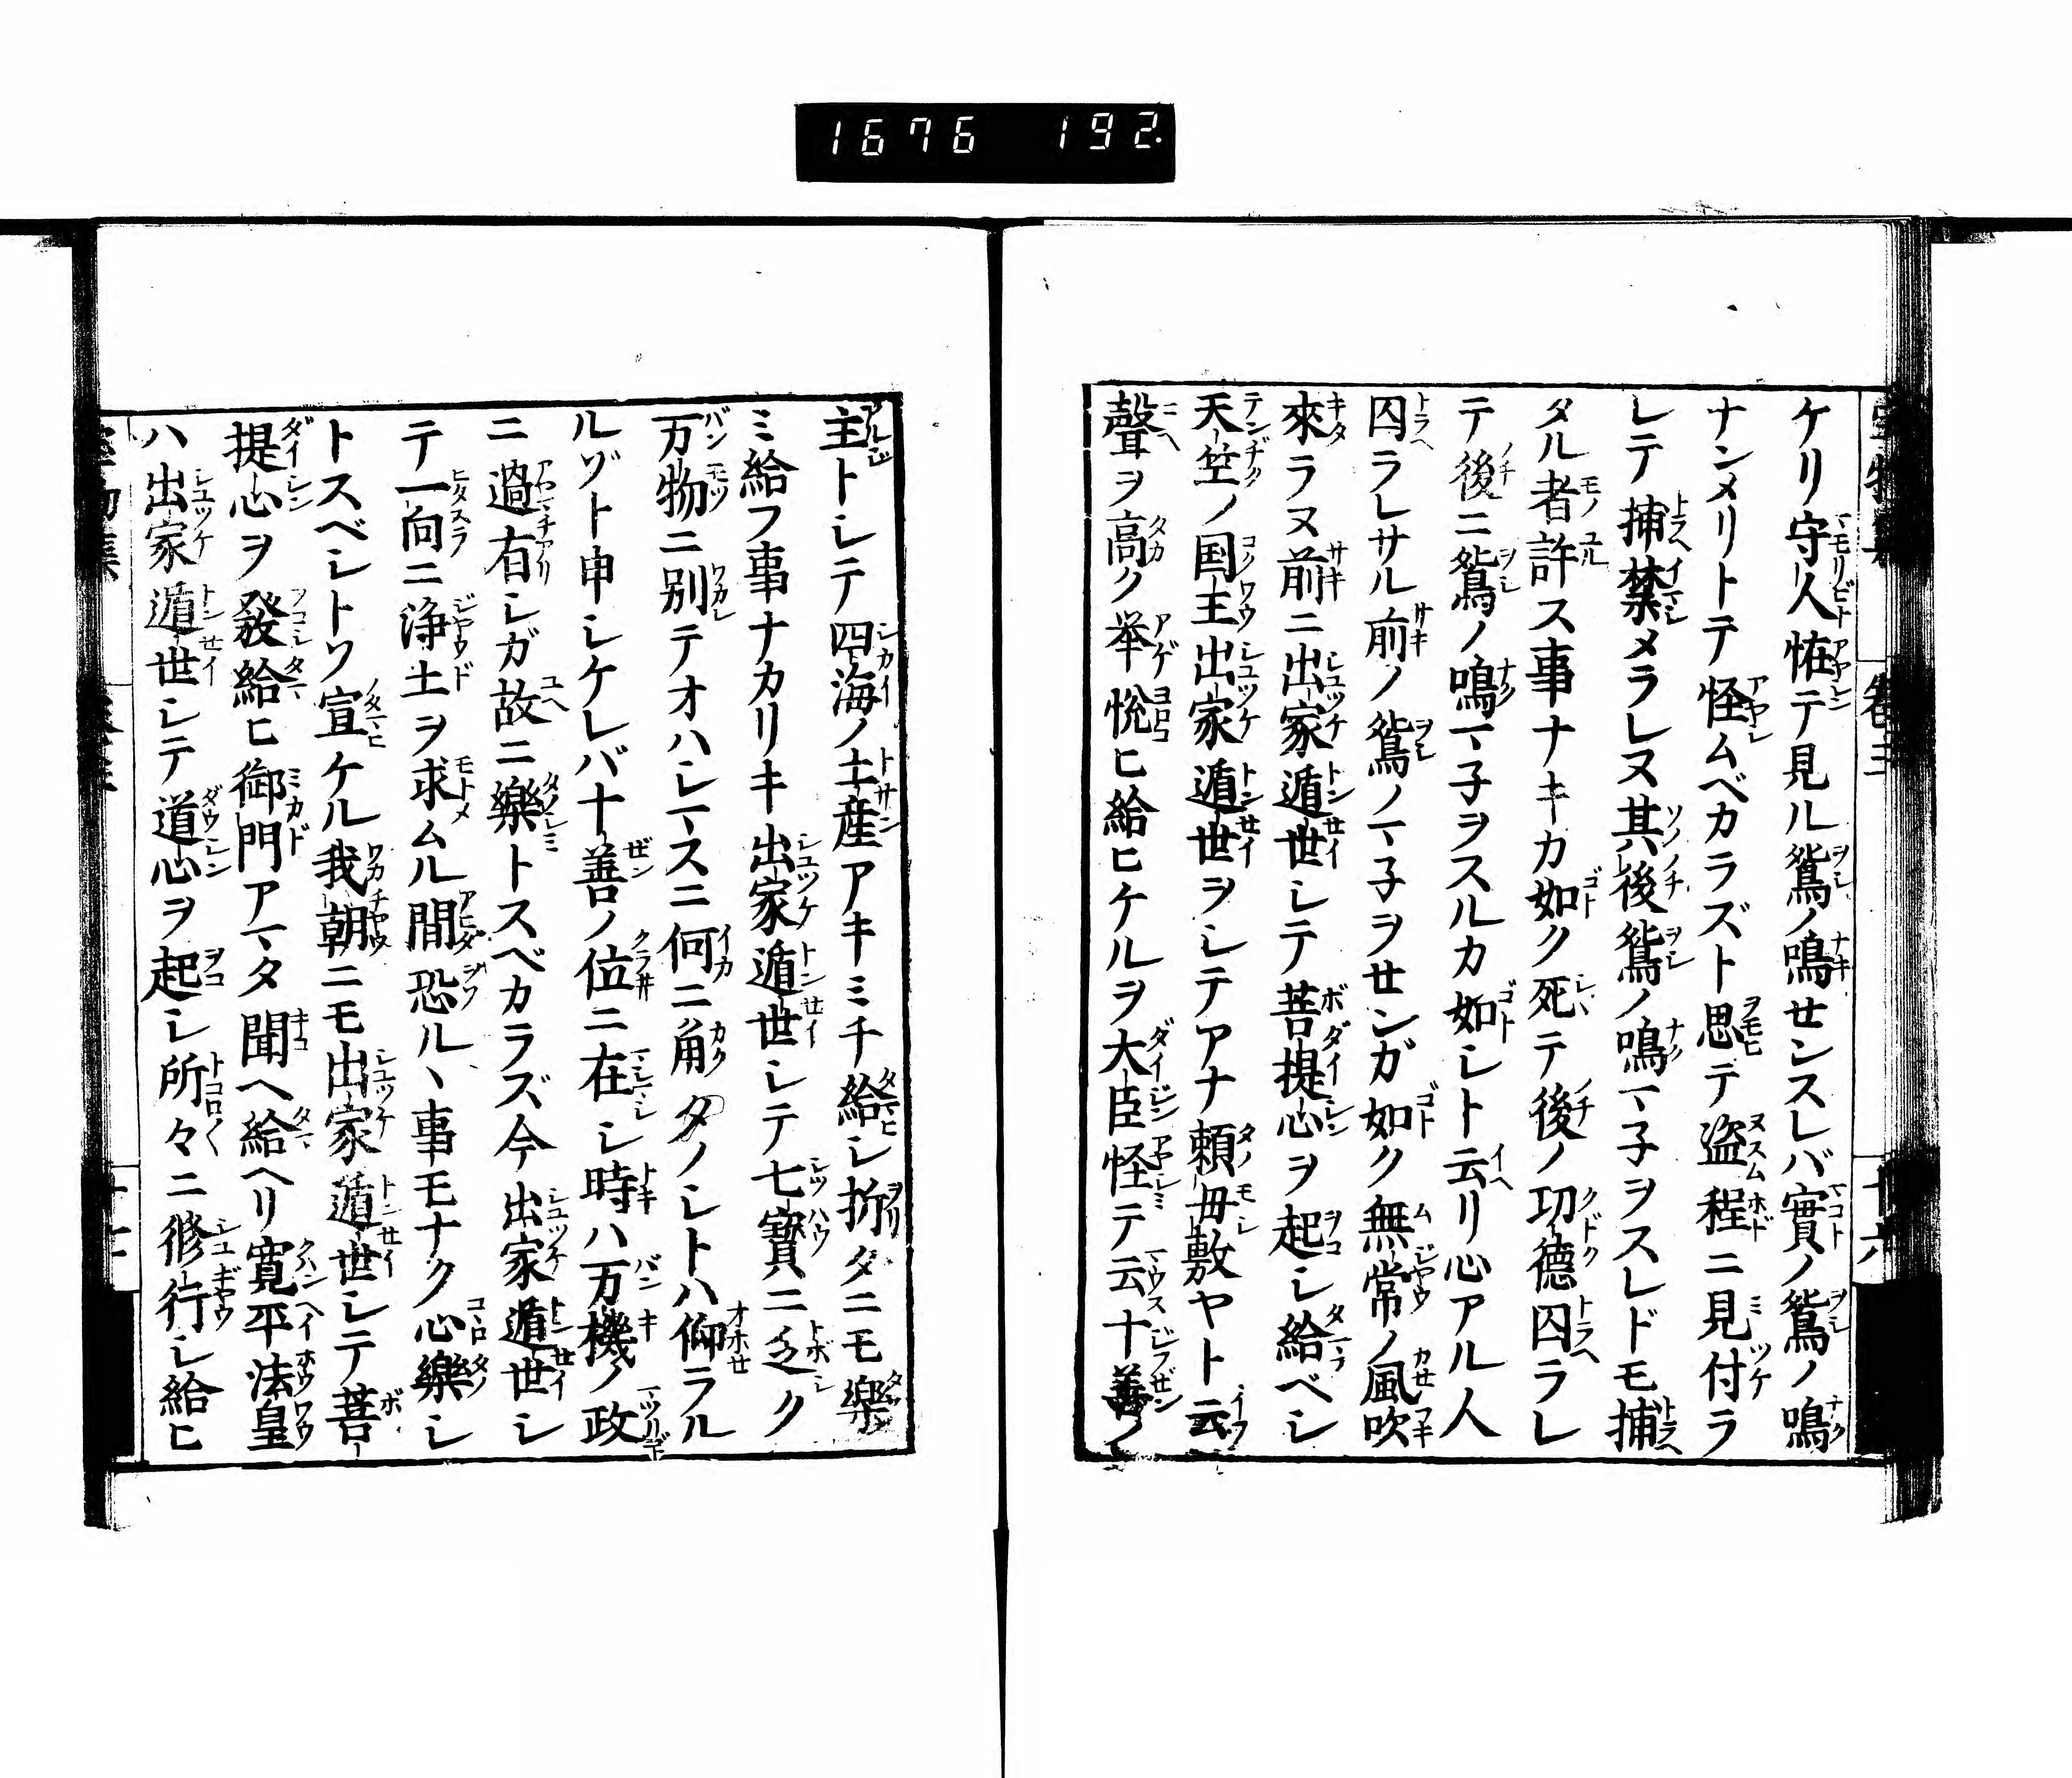 1676 192
ケリ守人恠テ見ル鴛ノ鳴センスレバ實ノ鴛ノ鳴
ナンメリトテ怪ムベカラズト思テ盗程ニ見付ラ
レテ捕禁メラレヌ其後鴛ノ鳴マ子ヲスレドモ捕
タル者許ス事ナキカ如ク死テ後ノ功德囚ラレ
テ後ニ鴛ノ鳴マ子ヲスルカ如シト云リ心アル人
囚ラレサル前ノ鴛ノマ子ヲセンガ如ク無常ノ風吹
來ラヌ前ニ出家遁世シテ菩提心ヲ起シ給ベシ
天竺ノ国王出家遁世ヲシテアナ頼毋敷ヤト云
聲ヲ高ク举悅ヒ給ヒケルヲ大臣怪テ云十善ノ
主トシテ四海ノ土産アキミチ給シ折タニモ樂
ミ給フ事ナカリキ出家遁世シテ七寶ニ乏ク
万物ニ別テオハシマスニ何ニ角タノシトハ仰ラル
ルゾト申シケレバ十善ノ位ニ在シ時ハ万機ノ政
ニ過有シガ故ニ樂トスベカラズ今出家遁世シ
テ一向ニ浄土ヲ求ムル間恐ルヽ事モナク心樂シ
トスベシトソ宣ケル我朝ニモ出家遁世シテ菩
提心ヲ發給ヒ御門アマタ聞ヘ給ヘリ寛平法皇
ハ出家遁世シテ道心ヲ起シ所々ニ修行シ給ヒ